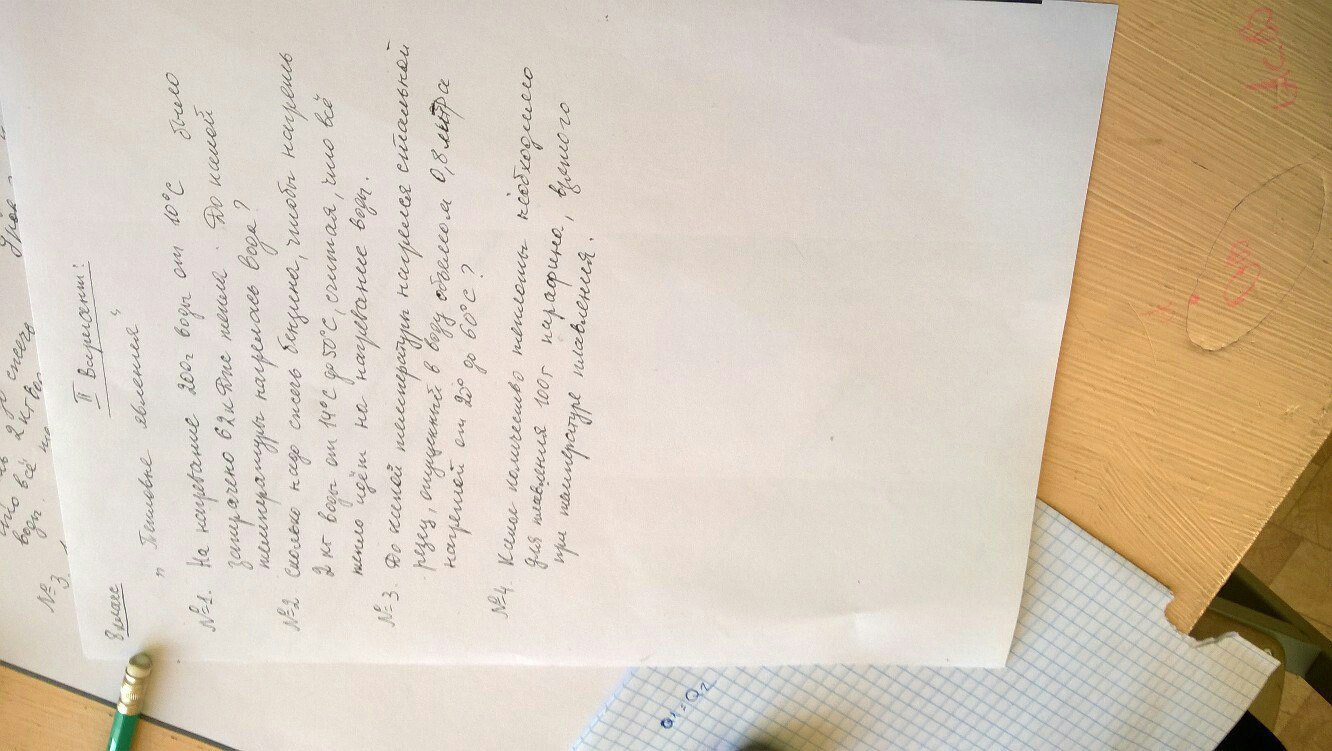 8 класс
II Вариант:
„Тепловые явления“
№1. На нагревание 200г воды от 10°С было
затрачено 62кДж тепла. До какой
температуры нагрелась вода?
№2 Сколько надо сжечь бензина, чтобы нагреть
2 кг воды от 14°С до 50°С, считая, что всё
тепло идёт на нагревание воды.
№3. До какой температуры нагрелся стальной
резец, опущенный в воду объемом 0,8 литра
нагретой от 20° до 60°С?
№4. Какое количество теплоты необходимо
для плавления 100г парафина, взятого
при температуре плавления.
№3
2 кг
воды всё
Q1=Q2